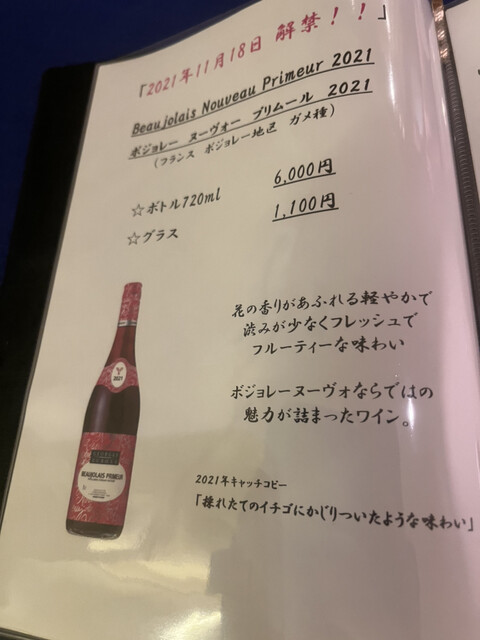 「2021年11月18日 解禁！！」
Beaujolais Nouveau Primeur 2021
ボジョレー ヌーヴォー プリムール 2021
(フランス ボジョレー地区 ガメ種)
☆ボトル720ml 6,000円
☆グラス 1,100円
花の香りがあふれる軽やかで
渋みが少なくフレッシュで
フルーティーな味わい
ボジョレーヌーヴォならではの
魅力が詰まったワイン。
2021年キャッチコピー
「採れたてのイチゴにかじりついたような味わい」
2021
BEAUJOLAIS PRIMEUR